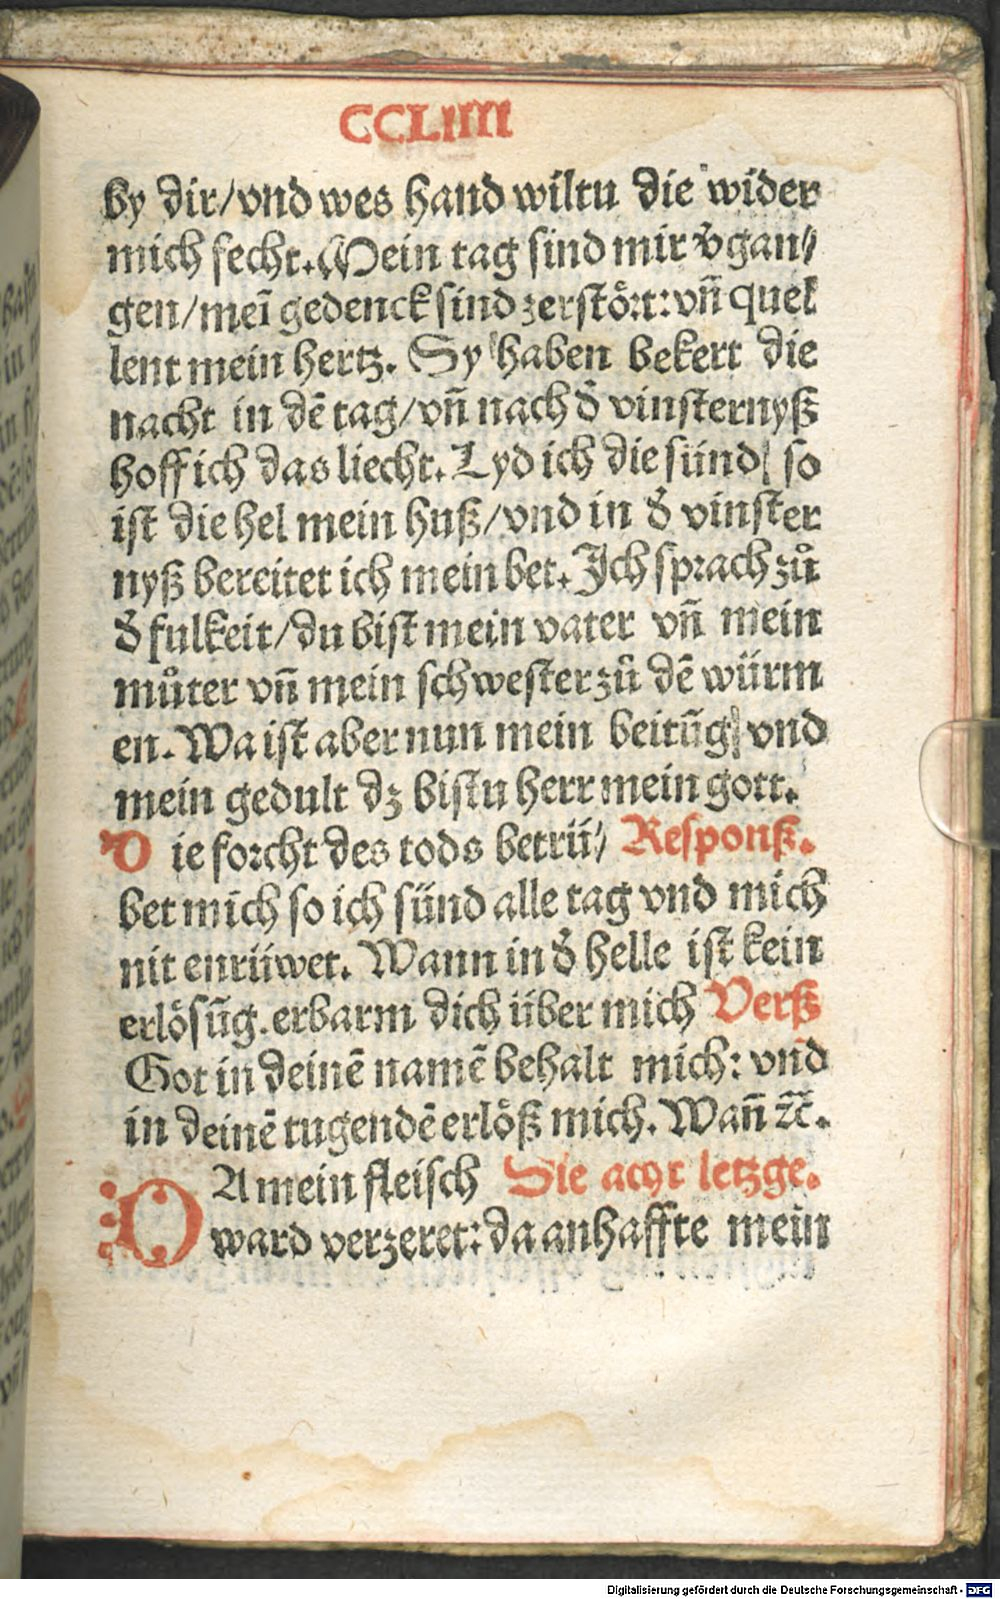 CCLIIII
by dir/vnd wes hand wiltu die wider
mich fecht. Mein tag sind mir v̄gan⸗
gen/meī gedenck sind zerstört: vn̄ quel
lent mein hertz. Sy haben bekert die
nacht in dē tag/vn̄ nach d̄ vinsternyß
hoff ich das liecht. Lyd ich die sünd so
ist die hel mein huß/vnd in d̄ vinster
nyß bereitet ich mein bet. Ich sprach zů
d̄ fulkeit/du bist mein vater vn̄ mein
můter vn̄ mein schwester zů dē würm
en. Wa ist aber nun mein beitūg vnd
mein gedult dz bistu herr mein gott.
Die forcht des tods betrü⸗ Responß.
bet mich so ich sünd alle tag vnd mich
nit enrüwet. Wann in d̄ helle ist kein
erlösūg. erbarm dich über mich Verß
Got in deinē namē behalt mich: vnd
in deinē tugendē erlöß mich. Wan̄ ꝛc̄.
DA mein fleisch Die acht letzge.
ward verzeret: da anhaffte mein
Digitalisierung gefördert durch die Deutsche Forschungsgemeinschaft - DFG